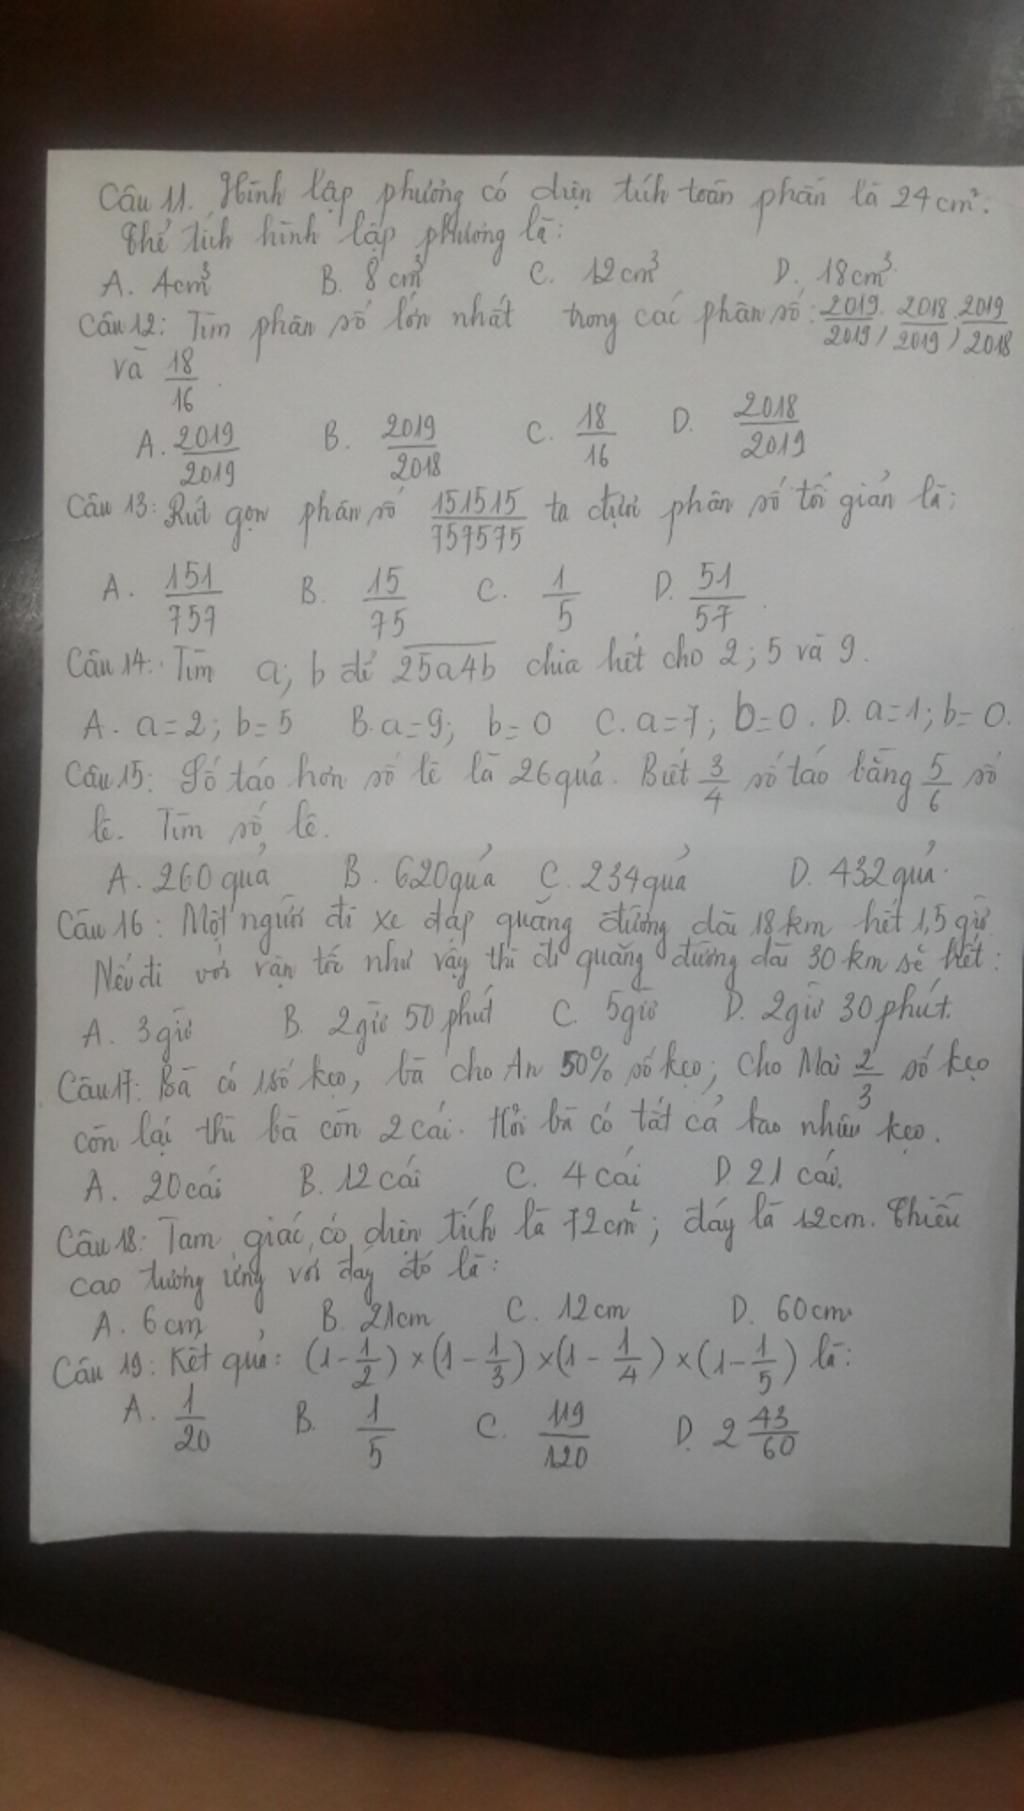 Câu 11. Hình lập phương có diện tích toàn phần là 24cm².
Thể tích hình lập phương là:
A. 4cm³ B. 8cm³ C. 12cm³ D. 18cm³
Câu 12: Tìm phân số lớn nhất trong các phân số: 2019/2019; 2018/2019; 2019/2018
và 18/16.
A. 2019/2019 B. 2019/2018 C. 18/16 D. 2018/2019
Câu 13: Rút gọn phân số 151515/757575 ta được phân số tối giản là:
A. 151/757 B. 15/75 C. 1/5 D. 51/57.
Câu 14: Tìm a; b để 25a4b chia hết cho 2; 5 và 9.
A. a=2; b=5 B. a=9; b=0 C. a=7; b=0. D. a=1; b=0.
Câu 15: Số táo hơn số lê là 26 quả. Biết 3/4 số táo bằng 5/6 số
lê. Tìm số lê.
A. 260 quả B. 620 quả C. 234 quả D. 432 quả.
Câu 16: Một người đi xe đạp quãng đường dài 18km hết 1,5 giờ.
Nếu đi với vận tốc như vậy thì đi quãng đường dài 30 km sẽ hết:
A. 3 giờ B. 2 giờ 50 phút C. 5 giờ D. 2 giờ 30 phút.
Câu 17: Bà có 1 số kẹo, bà cho An 50% số kẹo; cho Mai 2/3 số kẹo
còn lại thì bà còn 2 cái. Hỏi bà có tất cả bao nhiêu kẹo.
A. 20 cái B. 12 cái C. 4 cái D. 21 cái.
Câu 18: Tam giác có diện tích là 72cm²; đáy là 12cm. Chiều
cao tương ứng với đáy đó là:
A. 6cm B. 21cm C. 12cm D. 60cm.
Câu 19: Kết quả: (1-1/2)×(1-1/3)×(1-1/4)×(1-1/5) là:
A. 1/20 B. 1/5 C. 119/120 D. 2 43/60